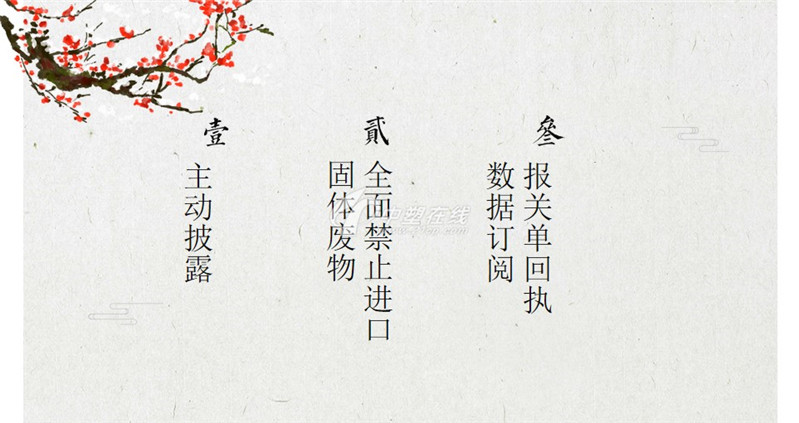 壹
主动披露
貳
全面禁止进口
固体废物
叄
报关单回执
数据订阅
中塑在线